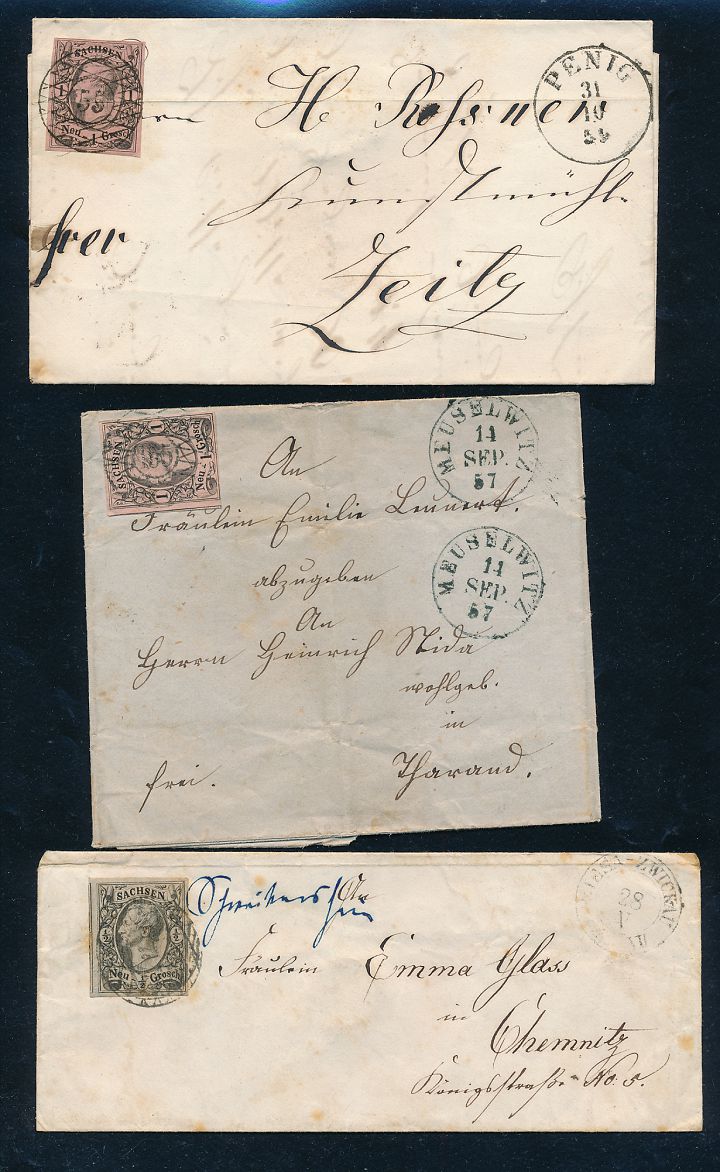 SACHSEN
1 1
Neu 1 Grosch
H Rossner
PENIG
31
10
Kunstmühl.
frei
Zeitz
SACHSEN
1 1
Neu 1 Grosch
MEUSELWITZ
14
SEP.
57
An
Fräulein Emilie Lennert.
MEUSELWITZ
14
SEP.
57
abzugeben
An
Herrn Heinrich Nida
wohlgeb.
in
frei.
Tharand.
SACHSEN
½ ½
Neu ½ Grosch
An
RIESA-ZWICKAU
28
V
Fräulein Emma Glass
in
Chemnitz
Königsstraße No. 5.